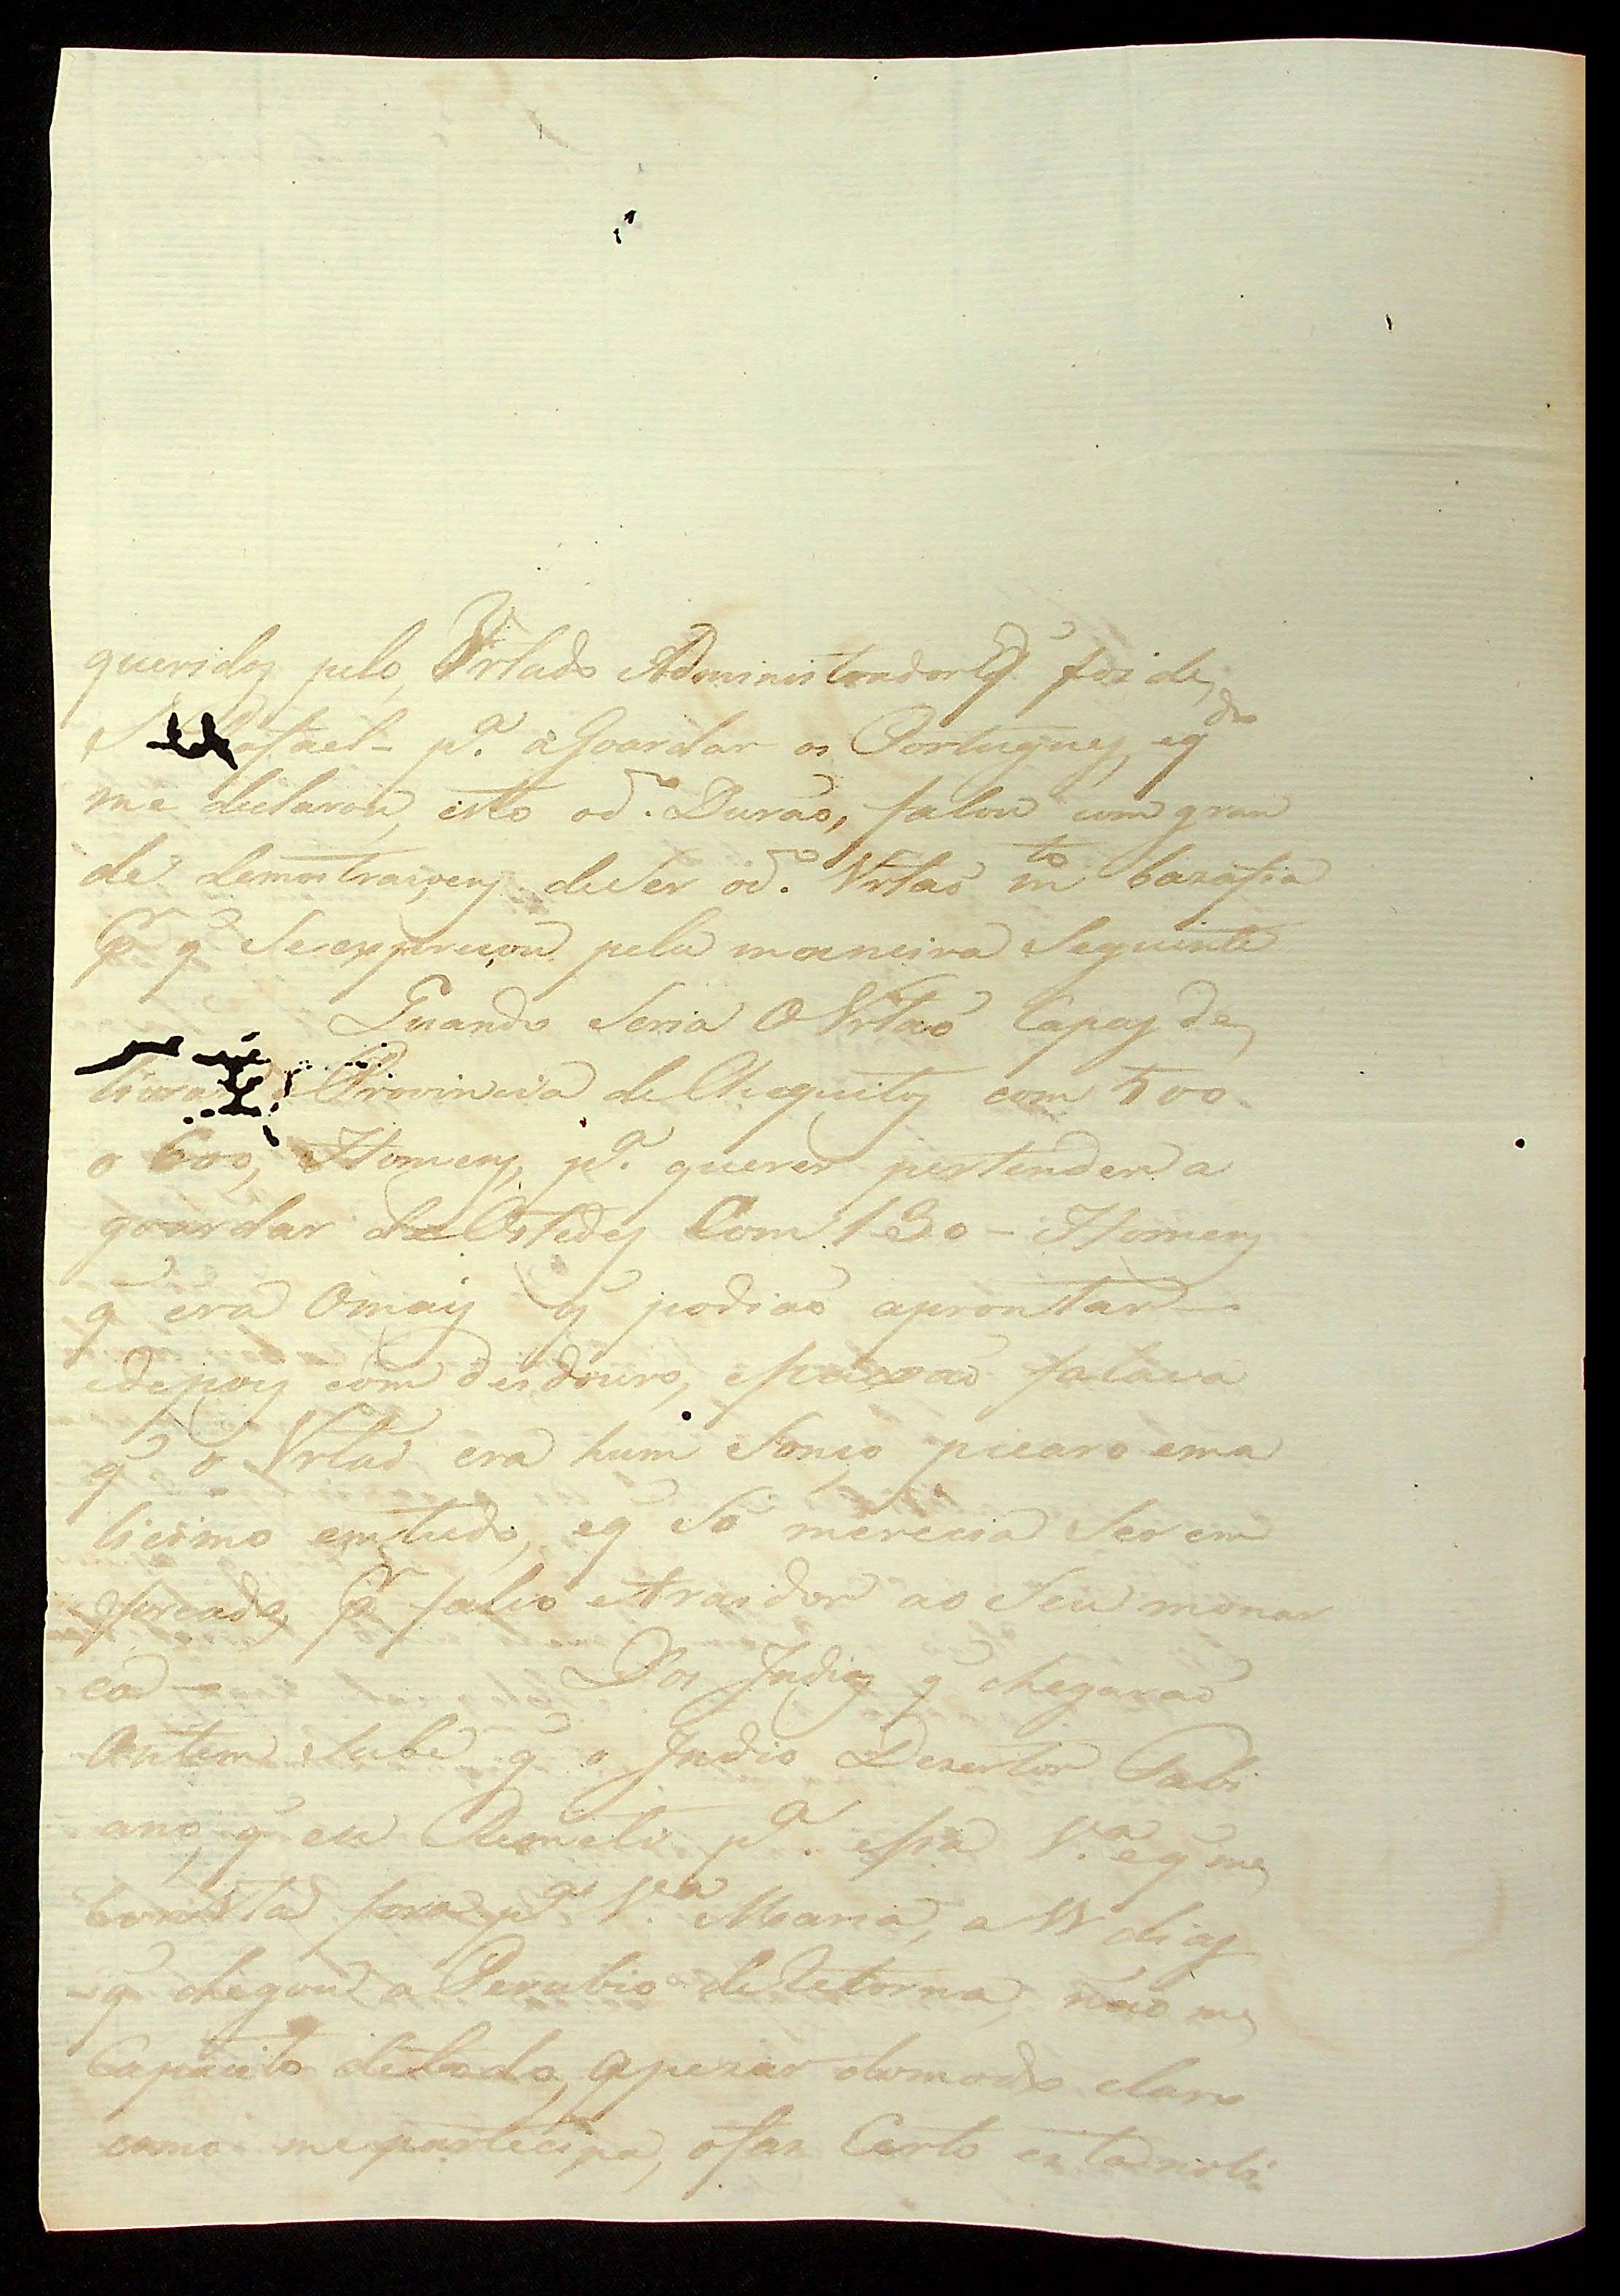 queridos pelo, Vrtado Administrador q̃ foi de,
S. Rafael - pª. aGoardar os Portugues, eq̃ do
me declarou, isto od.º Durão, falou com gran
de demostraçoens deSer od.º Vrtaõ mto bazofia
Pr q̃ Seexpreçou pela maneira Seguinte
Quando Seria O Vrtaõ Capas de,
Provincia deChiquitos com 500-
o 600, Homens, pª. querer pertender a
goardar Ostedes Com 130 - Homens
q̃ era Omais q̃ podiaõ aprontar -
edepois com desdouro, epaixaõ falava
q̃ o Vrtaõ era hum Sonço picaro ema
licimo emtudo, eq̃ Só merecia Ser em
forcado, Pr falço etraidor ao Seu monar
ca - Dos Indios q̃ chegaraõ
Ontem Sube q̃ o Indio Dezertor Fabi
ano, q̃ eu Remeti pª. eSsa Vª. eq̃ me,
Consta fora pª. Vª. Maria, a VV dias
q̃ chegou a Perubio deRetorna, não me,
Capacito detodo, apezar domodo claro
como meparticipa, ofas Certo esta noti-